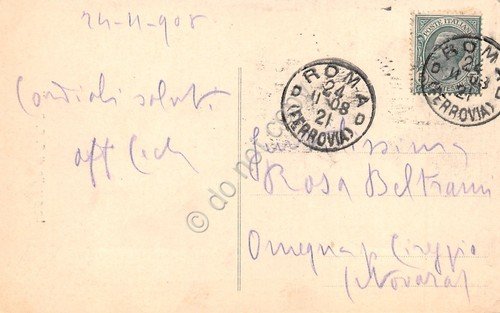 24-11-908
Cordiali saluti
POSTE ITALIANE
ROMA
24
11 08
21
(FERROVIA)
ROMA
24
11 08
21
(FERROVIA)
Gentilissima
Rosa Beltrami
Omegna p. Cireggio
(Novara)
© do not copy